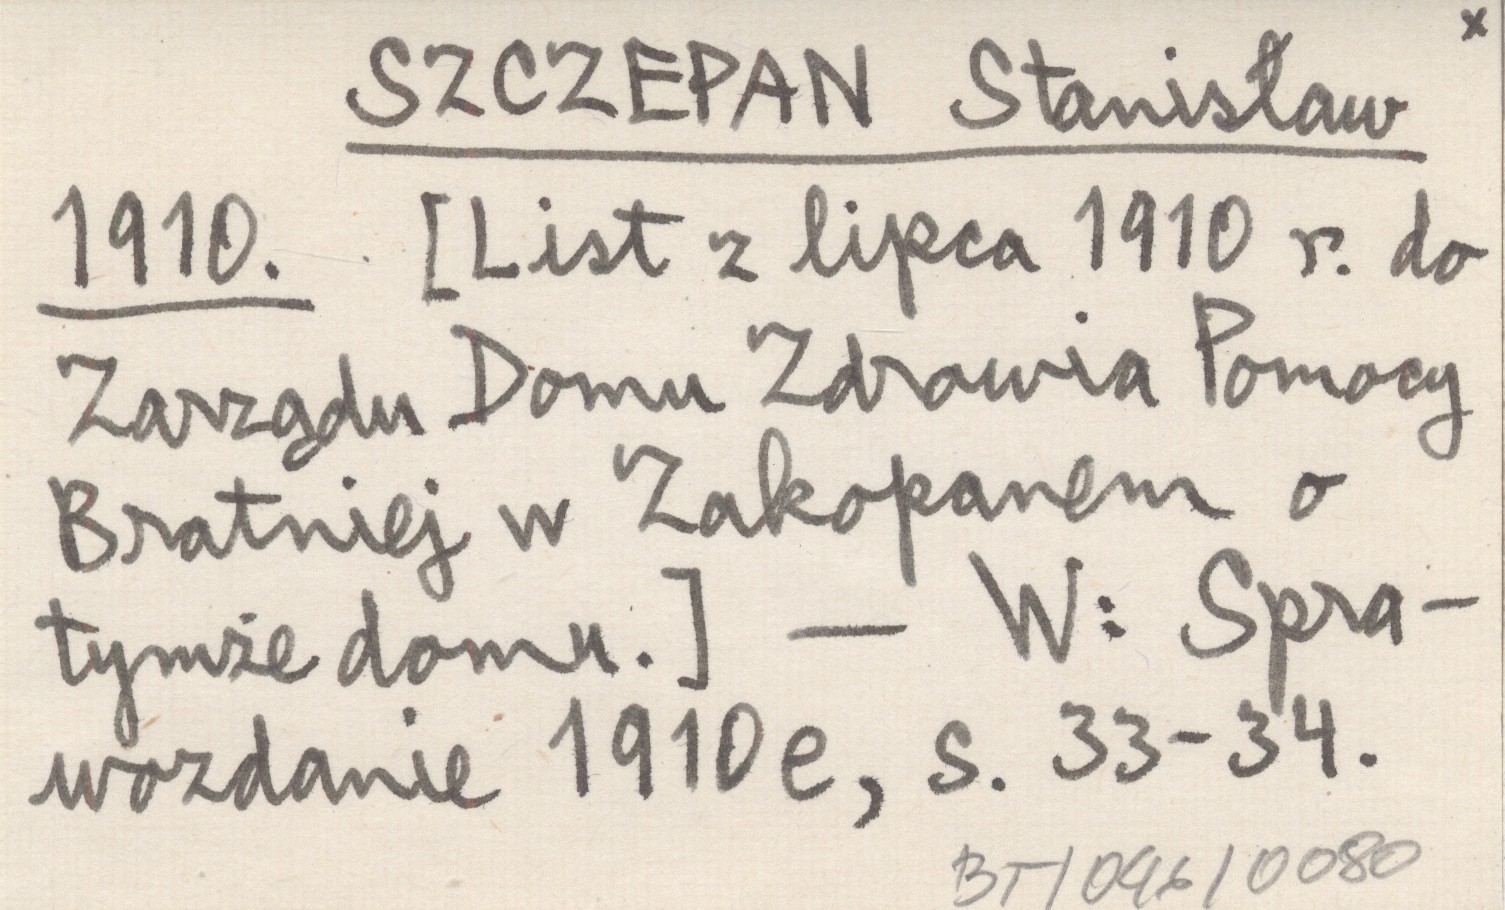 x
SZCZEPAN Stanisław
1910. [List z lipca 1910 r. do
Zarządu Domu Zdrowia Pomocy
Bratniej w Zakopanem o
tymże domu.] — W: Spra-
wozdanie 1910e, s. 33-34.
BT/096/0080